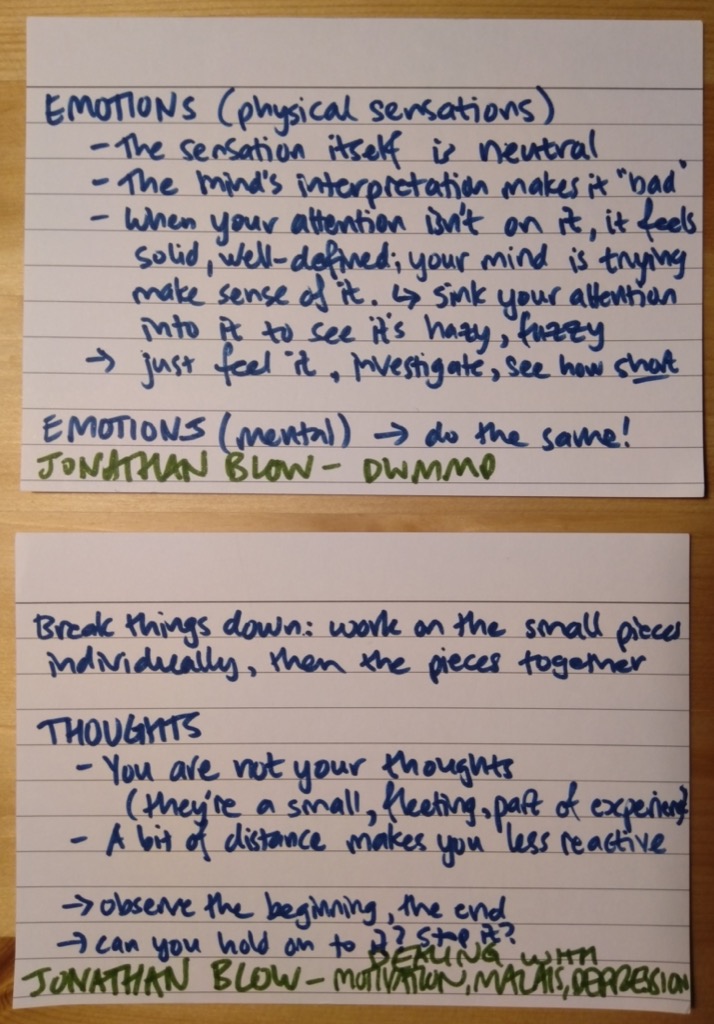 EMOTIONS (physical sensations)
- The sensation itself is neutral
- The mind's interpretation makes it "bad"
- When your attention isn't on it, it feels
solid, well-defined; your mind is trying
make sense of it. ↳ sink your attention
into it to see it's hazy, fuzzy
→ just feel it, investigate, see how short
EMOTIONS (mental) → do the same!
JONATHAN BLOW - DWMMD
Break things down: work on the small pieces
individually, then the pieces together
THOUGHTS
- You are not your thoughts
(they're a small, fleeting, part of experience)
- A bit of distance makes you less reactive
→ observe the beginning, the end
→ can you hold on to it? stop it?
DEALING WITH
JONATHAN BLOW - MOTIVATION, MALAIS, DEPRESSION